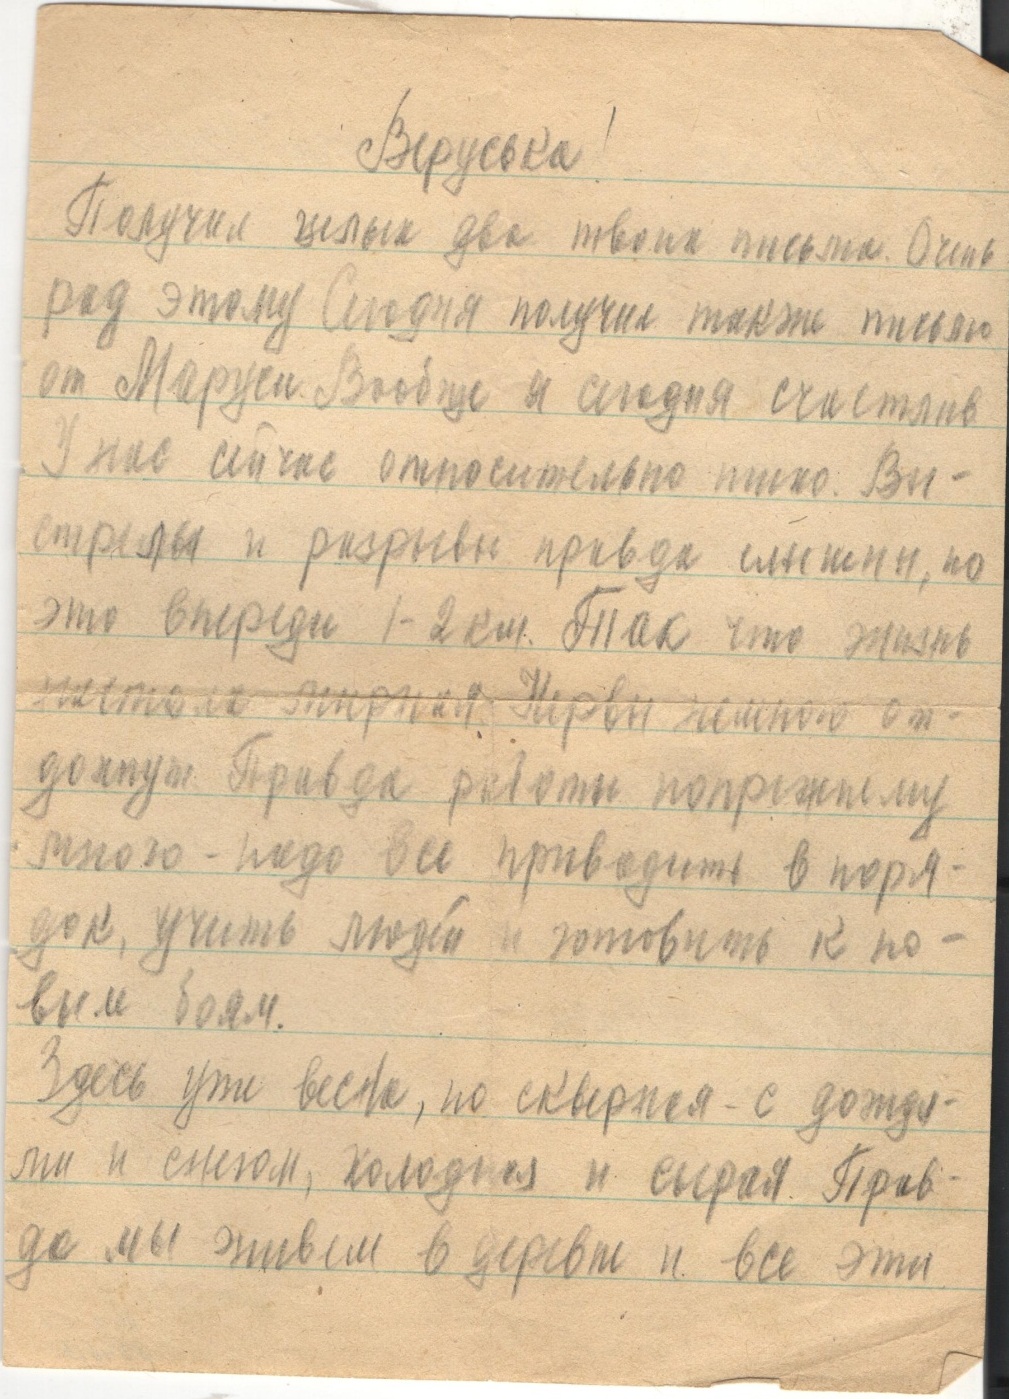 Веруська!
Получил целых два твоих письма. Очень
рад этому Сегодня получил также письмо
от Маруси. Вообще я сегодня счастлив
У нас сейчас относительно тихо. Вы-
стрелы и разрывы правда слышны, но
это впереди 1-2 км. Так что жизнь
настала мирная. Нервы немного от-
дохнут. Правда работы попрежнему
много - надо все приводить в поря-
док, учить людей и готовить к но-
вым боям.
Здесь уже весна, но скверная - с дождя-
ми и снегом, холодная и сырая. Прав-
да мы живем в деревне и все эти